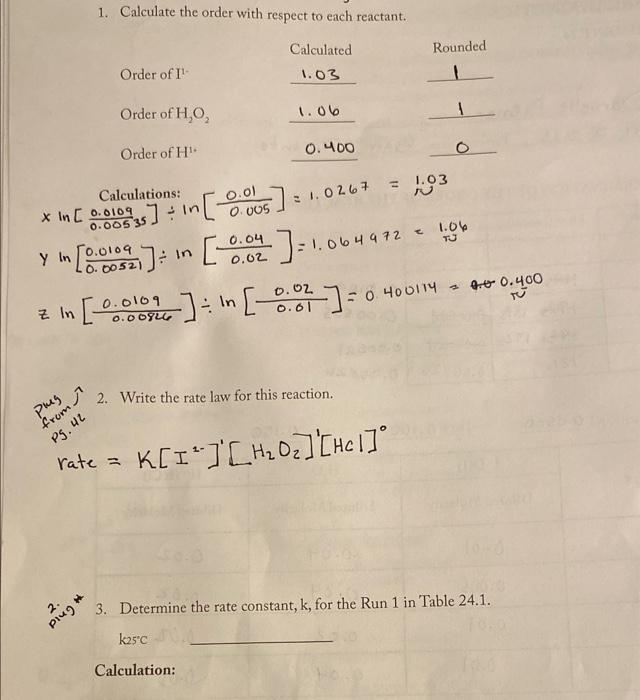 1. Calculate the order with respect to each reactant.
Calculated Rounded
Order of I¹⁻ 1.03 1
Order of H₂O₂ 1.06 1
Order of H¹⁺ 0.400 0
Calculations:
x ln [0.0109 / 0.00535] ÷ ln [0.01 / 0.005] = 1.0267 = 1.03
y ln [0.0109 / 0.00521] ÷ ln [0.04 / 0.02] = 1.064972 = 1.06
z ln [0.0109 / 0.00826] ÷ ln [0.02 / 0.01] = 0.400114 = 0.400
plug from pg. 42
2. Write the rate law for this reaction.
rate = K[I²⁻]¹[H₂O₂]¹[HCl]⁰
2. plug *
3. Determine the rate constant, k, for the Run 1 in Table 24.1.
k25°C
Calculation: